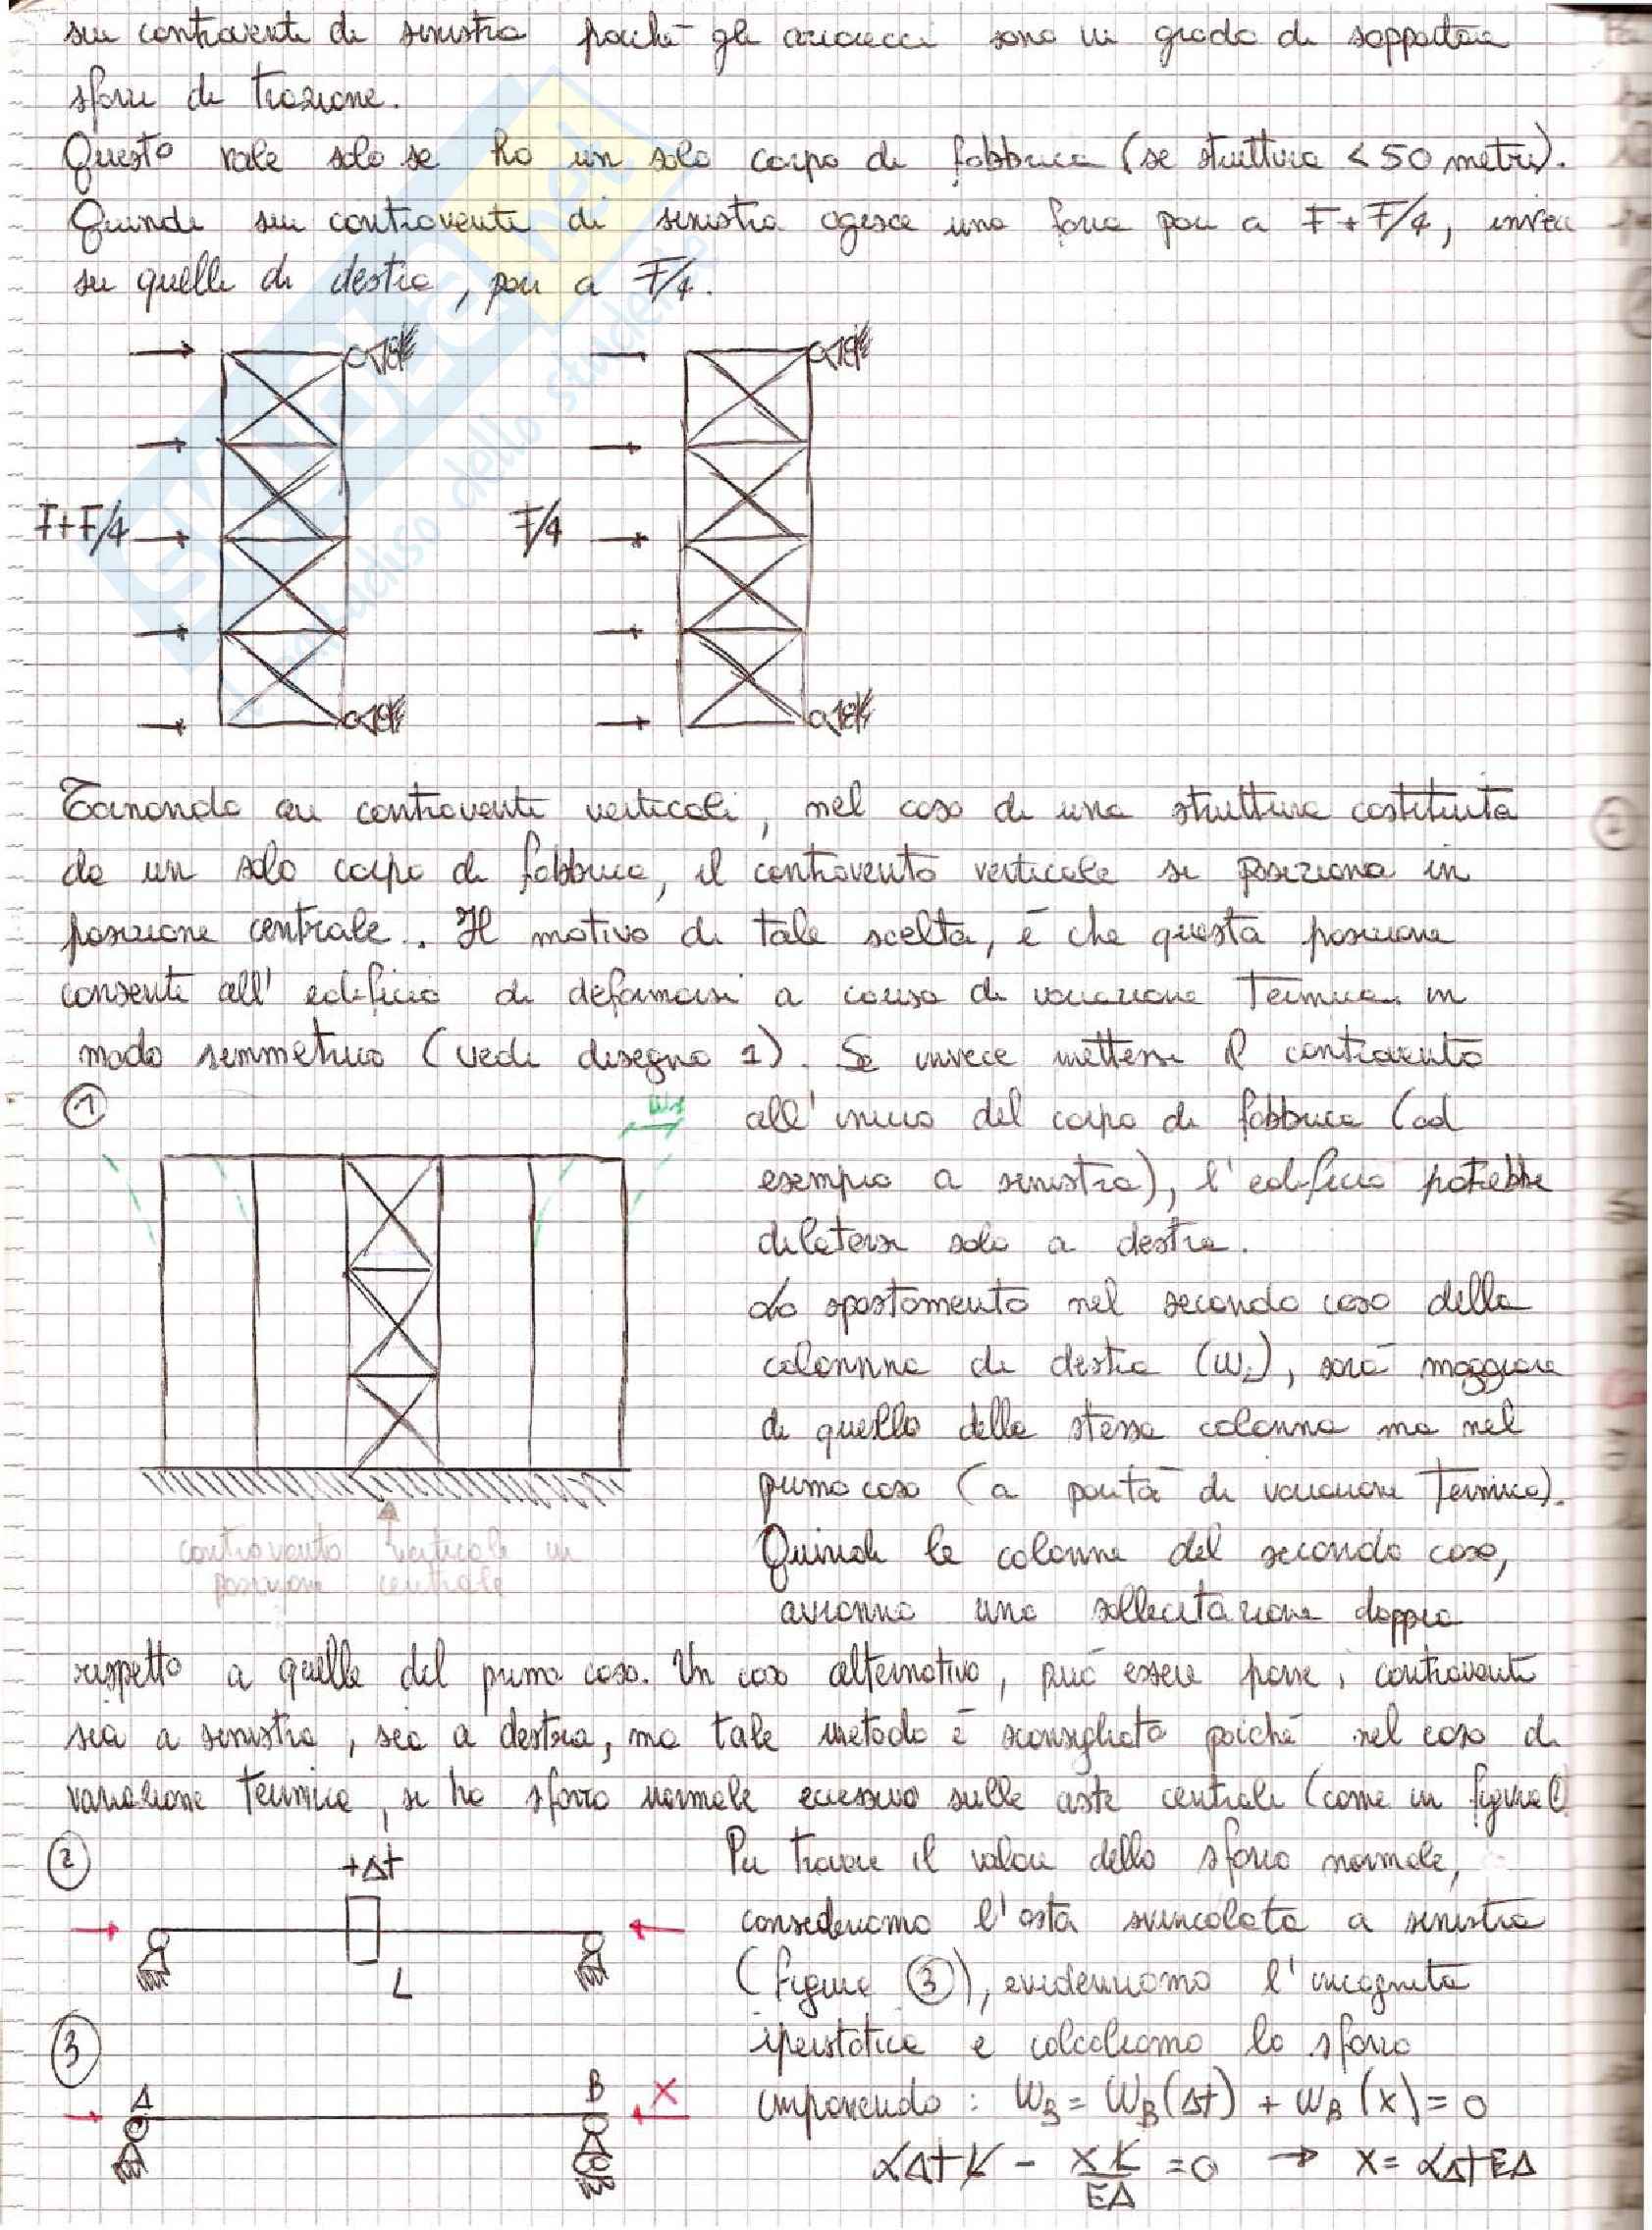 sui controventi di sinistra poiché gli arcarecci sono in grado di sopportare
sforzi di trazione.
Questo vale solo se ho un solo corpo di fabbrica (se struttura < 50 metri).
Quindi sui controventi di sinistra agisce una forza pari a F+F/4, invece
su quelli di destra, pari a F/4.
F+F/4
F/4
Tornando ai controventi verticali, nel caso di una struttura costituita
da un solo corpo di fabbrica, il controvento verticale si posiziona in
posizione centrale. Il motivo di tale scelta, è che questa posizione
consente all'edificio di deformarsi a causa di variazione termica in
modo simmetrico (vedi disegno 1). Se invece mettessi il controvento
①
W1
all'inizio del corpo di fabbrica (ad
esempio a sinistra), l'edificio potrebbe
dilatarsi solo a destra.
Lo spostamento nel secondo caso della
colonnna di destra (W2), sarà maggiore
di quello della stessa colonna ma nel
primo caso (a parità di variazione termica).
controvento verticale in
posizione centrale
Quindi le colonne del secondo caso,
avranno una sollecitazione doppia
rispetto a quelle del primo caso. Un caso alternativo, può essere porre i controventi
sia a sinistra, sia a destra, ma tale metodo è sconsigliato poiché nel caso di
variazione termica, si ha sforzo normale eccessivo sulle aste centrali (come in figura
②
+Δt
L
Per trovare il valore dello sforzo normale,
consideriamo l'asta svincolata a sinistra
(figura ③), evidenziamo l'incognita
iperstatica e calcoliamo lo sforzo
③
A
B
X
imponendo: WB = WB(Δt) + WB(X) = 0
αΔtL - XL/EA = 0 → X = αΔtEA
SKUOLA.net
paradiso dello studente